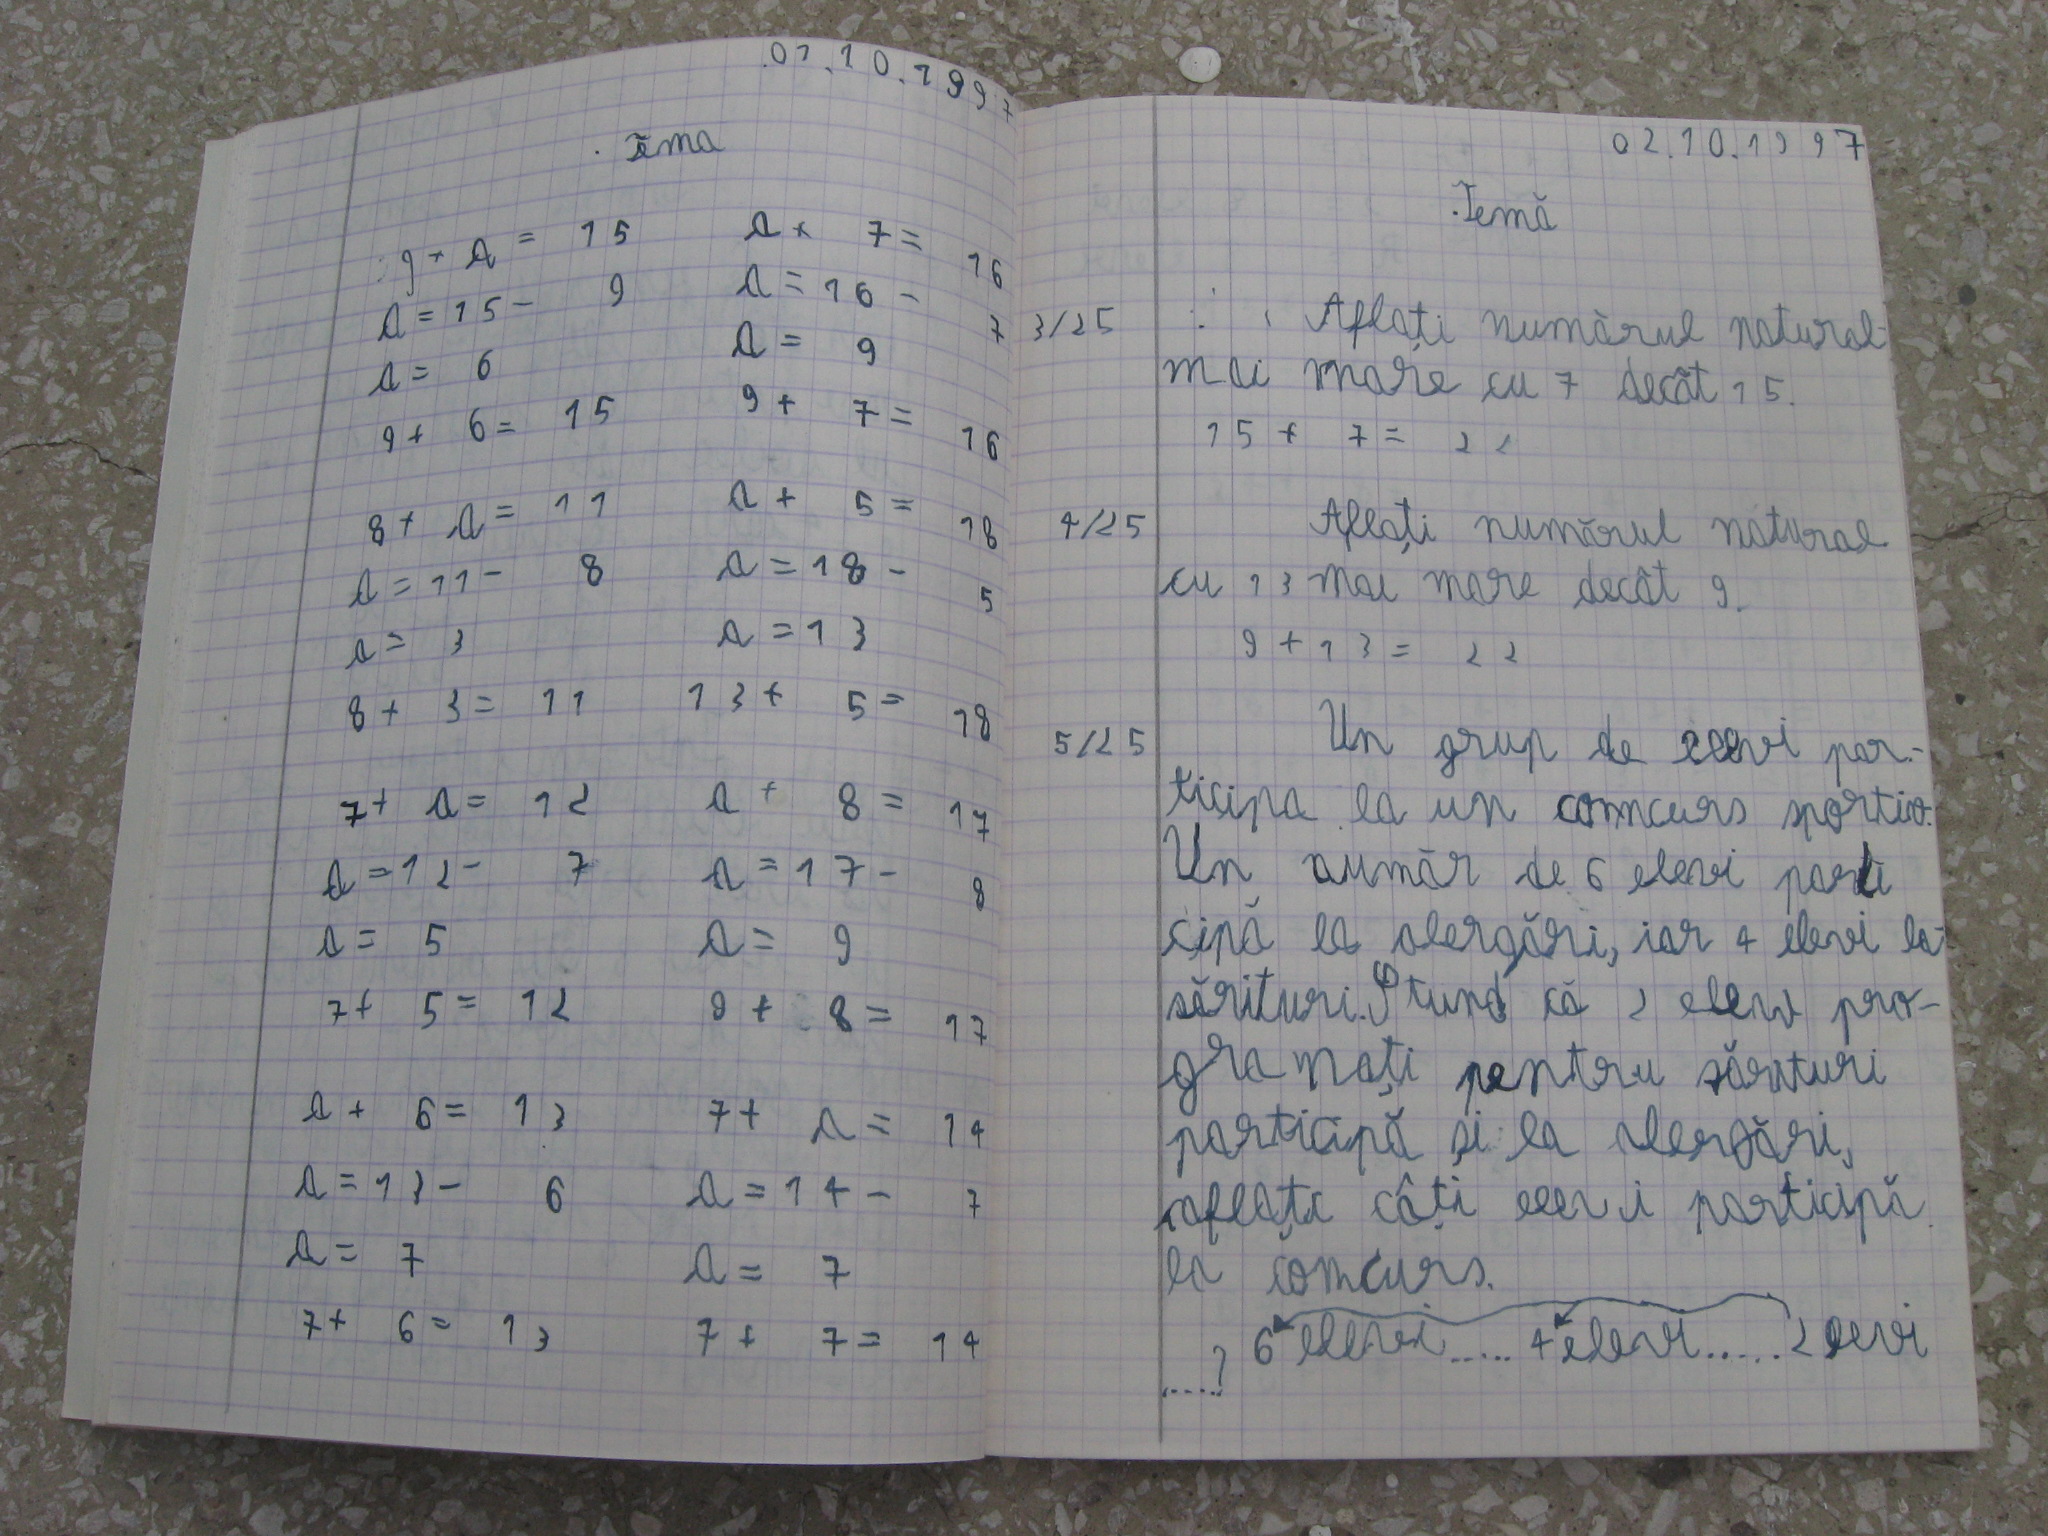 01.10.1997
Temă
9 + a = 15
a = 15 - 9
a = 6
9 + 6 = 15
8 + a = 11
a = 11 - 8
a = 3
8 + 3 = 11
7 + a = 12
a = 12 - 7
a = 5
7 + 5 = 12
a + 6 = 13
a = 13 - 6
a = 7
7 + 6 = 13
a + 7 = 16
a = 16 - 7
a = 9
9 + 7 = 16
a + 5 = 18
a = 18 - 5
a = 13
13 + 5 = 18
a + 8 = 17
a = 17 - 8
a = 9
9 + 8 = 17
7 + a = 14
a = 14 - 7
a = 7
7 + 7 = 14
02.10.1997
Temă
3/25 Aflați numărul natural
mai mare cu 7 decât 15.
15 + 7 = 22
4/25 Aflați numărul natural
cu 13 mai mare decât 9.
9 + 13 = 22
5/25 Un grup de elevi par-
ticipa la un comcurs sportiv.
Un număr de 6 elevi parti
cipă la alergări, iar 4 elevi la
sărituri. Știind că 2 elevi pro-
gramați pentru sărituri
participă și la alergări,
aflați câți elevi participă
la comcurs.
6 elevi ..... 4 elevi ...... 2 elevi
.....?